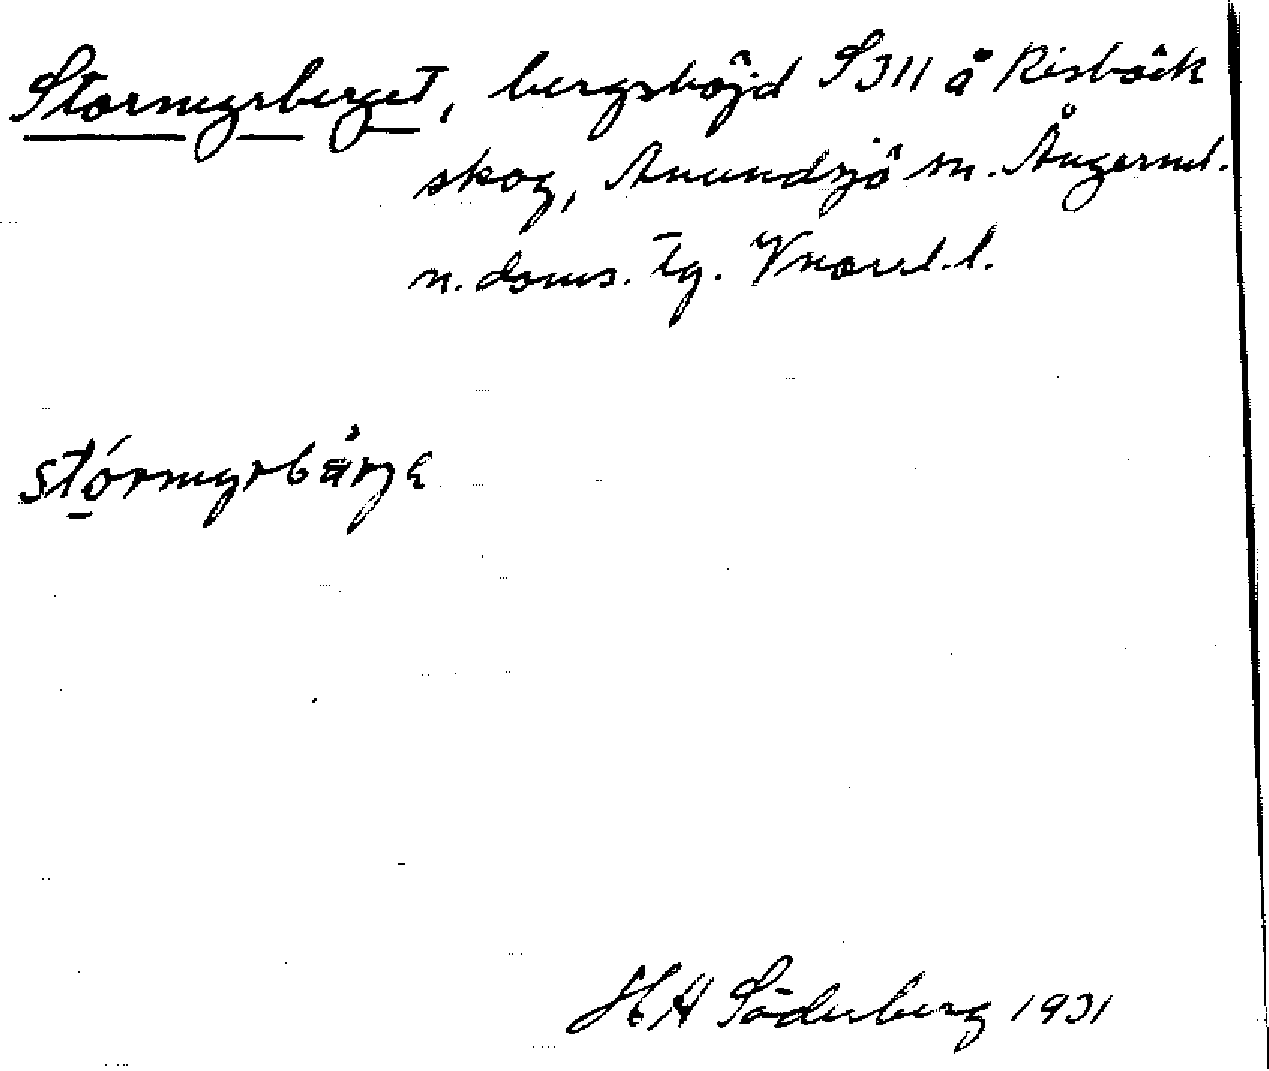 Stormyrberget, bergshöjd S311 å Risbäck
skog, Anundsjö sn. Ångerml.
n. doms. tg. Vnorrl. l.
stórmyrbårje
H H Söderberg 1931